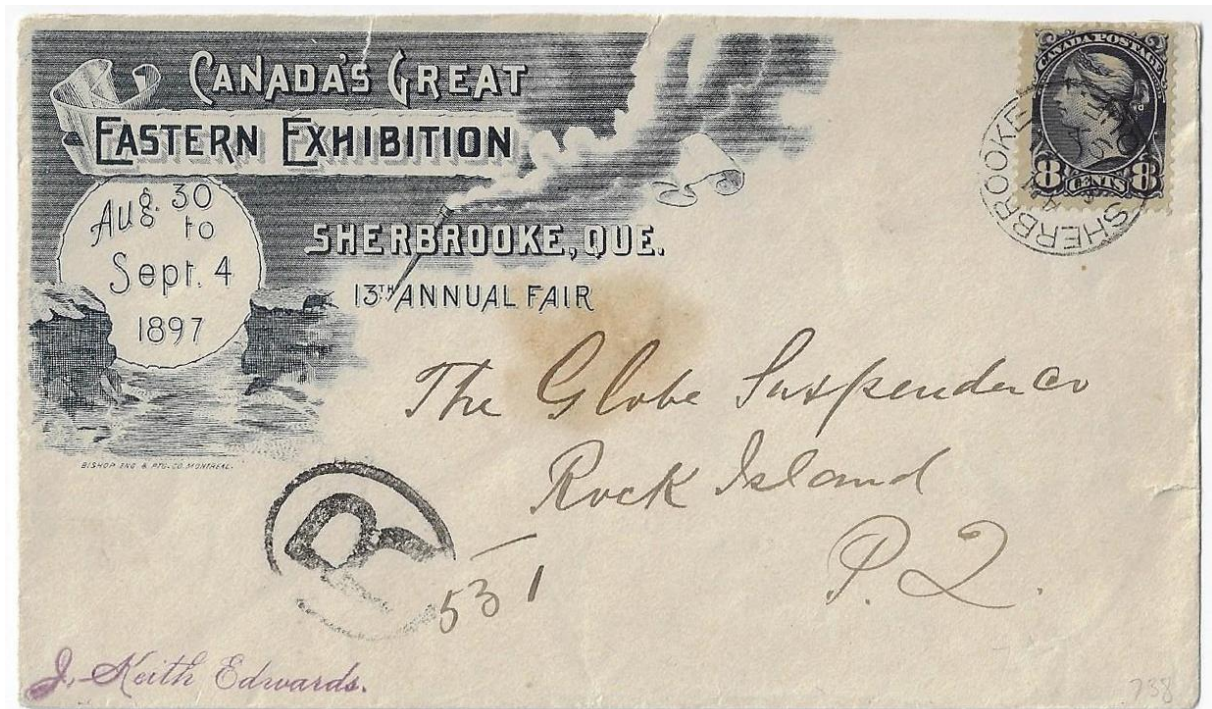 CANADA'S GREAT
EASTERN EXHIBITION
Aug. 30
to
Sept. 4
1897
SHERBROOKE, QUE.
13TH ANNUAL FAIR
BISHOP ENG. & PTG. CO. MONTREAL.
CANADA POSTAGE
8 CENTS 8
SHERBROOKE
The Globe Suspender Co
Rock Island
P. Q.
R
531
J. Keith Edwards.
738